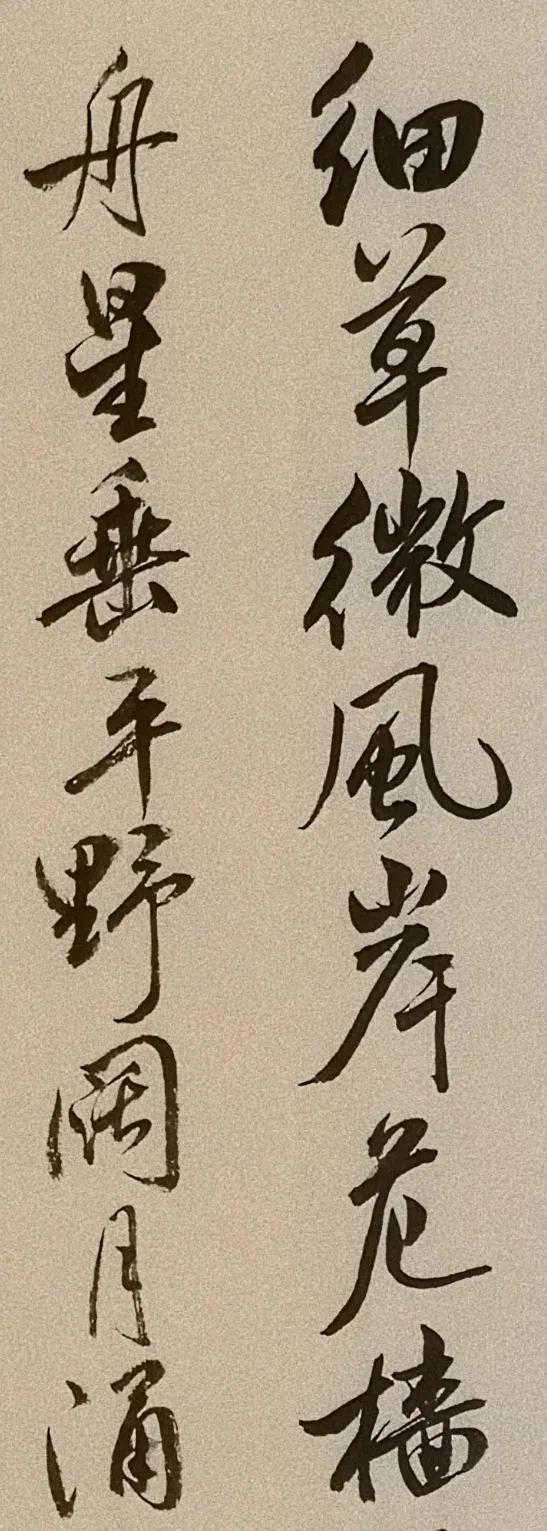 細草微風岸危檣
舟星垂平野闊月涌